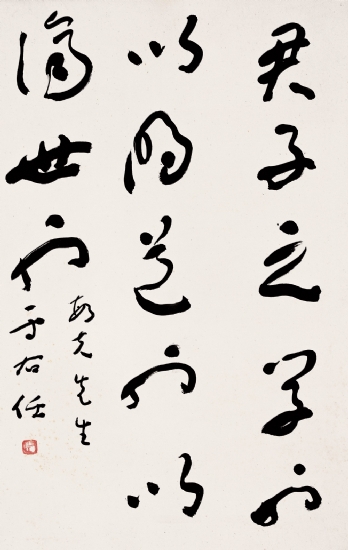 君子之學所
以明道也以
濟世也
先生
于右任